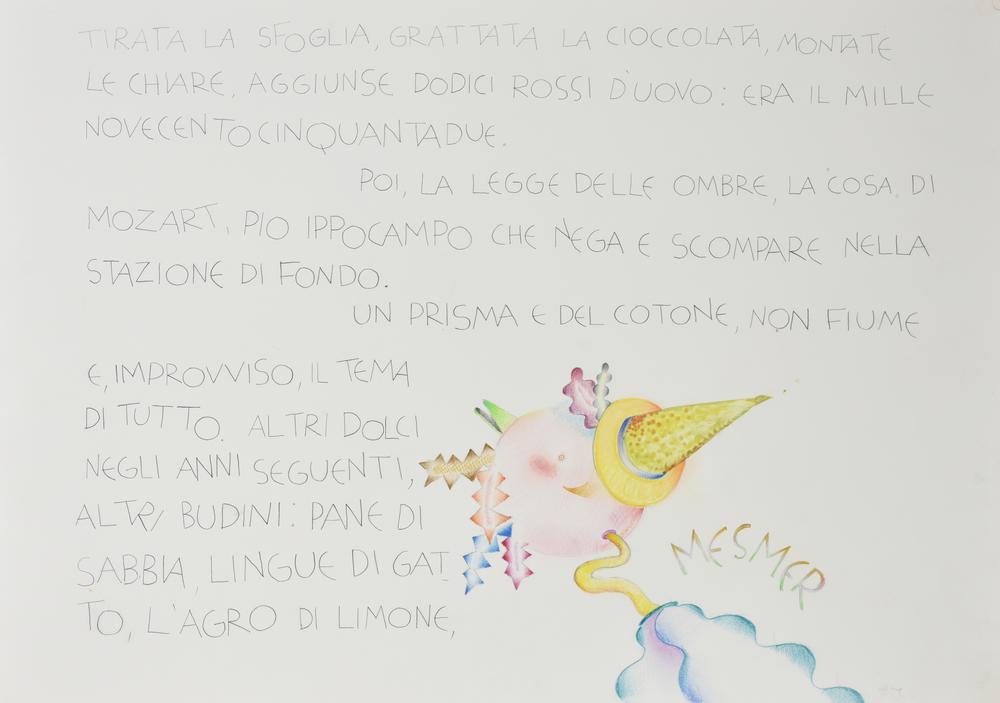 TIRATA LA SFOGLIA, GRATTATA LA CIOCCOLATA, MONTATE
LE CHIARE, AGGIUNSE DODICI ROSSI D'UOVO: ERA IL MILLE
NOVECENTOCINQUANTADUE.
POI, LA LEGGE DELLE OMBRE, LA COSA DI
MOZART, PIO IPPOCAMPO CHE NEGA E SCOMPARE NELLA
STAZIONE DI FONDO.
UN PRISMA E DEL COTONE, NON FIUME
E, IMPROVVISO, IL TEMA
DI TUTTO. ALTRI DOLCI
NEGLI ANNI SEGUENTI,
ALTRI BUDINI: PANE DI
SABBIA, LINGUE DI GAT
TO, L'AGRO DI LIMONE,
MESMER